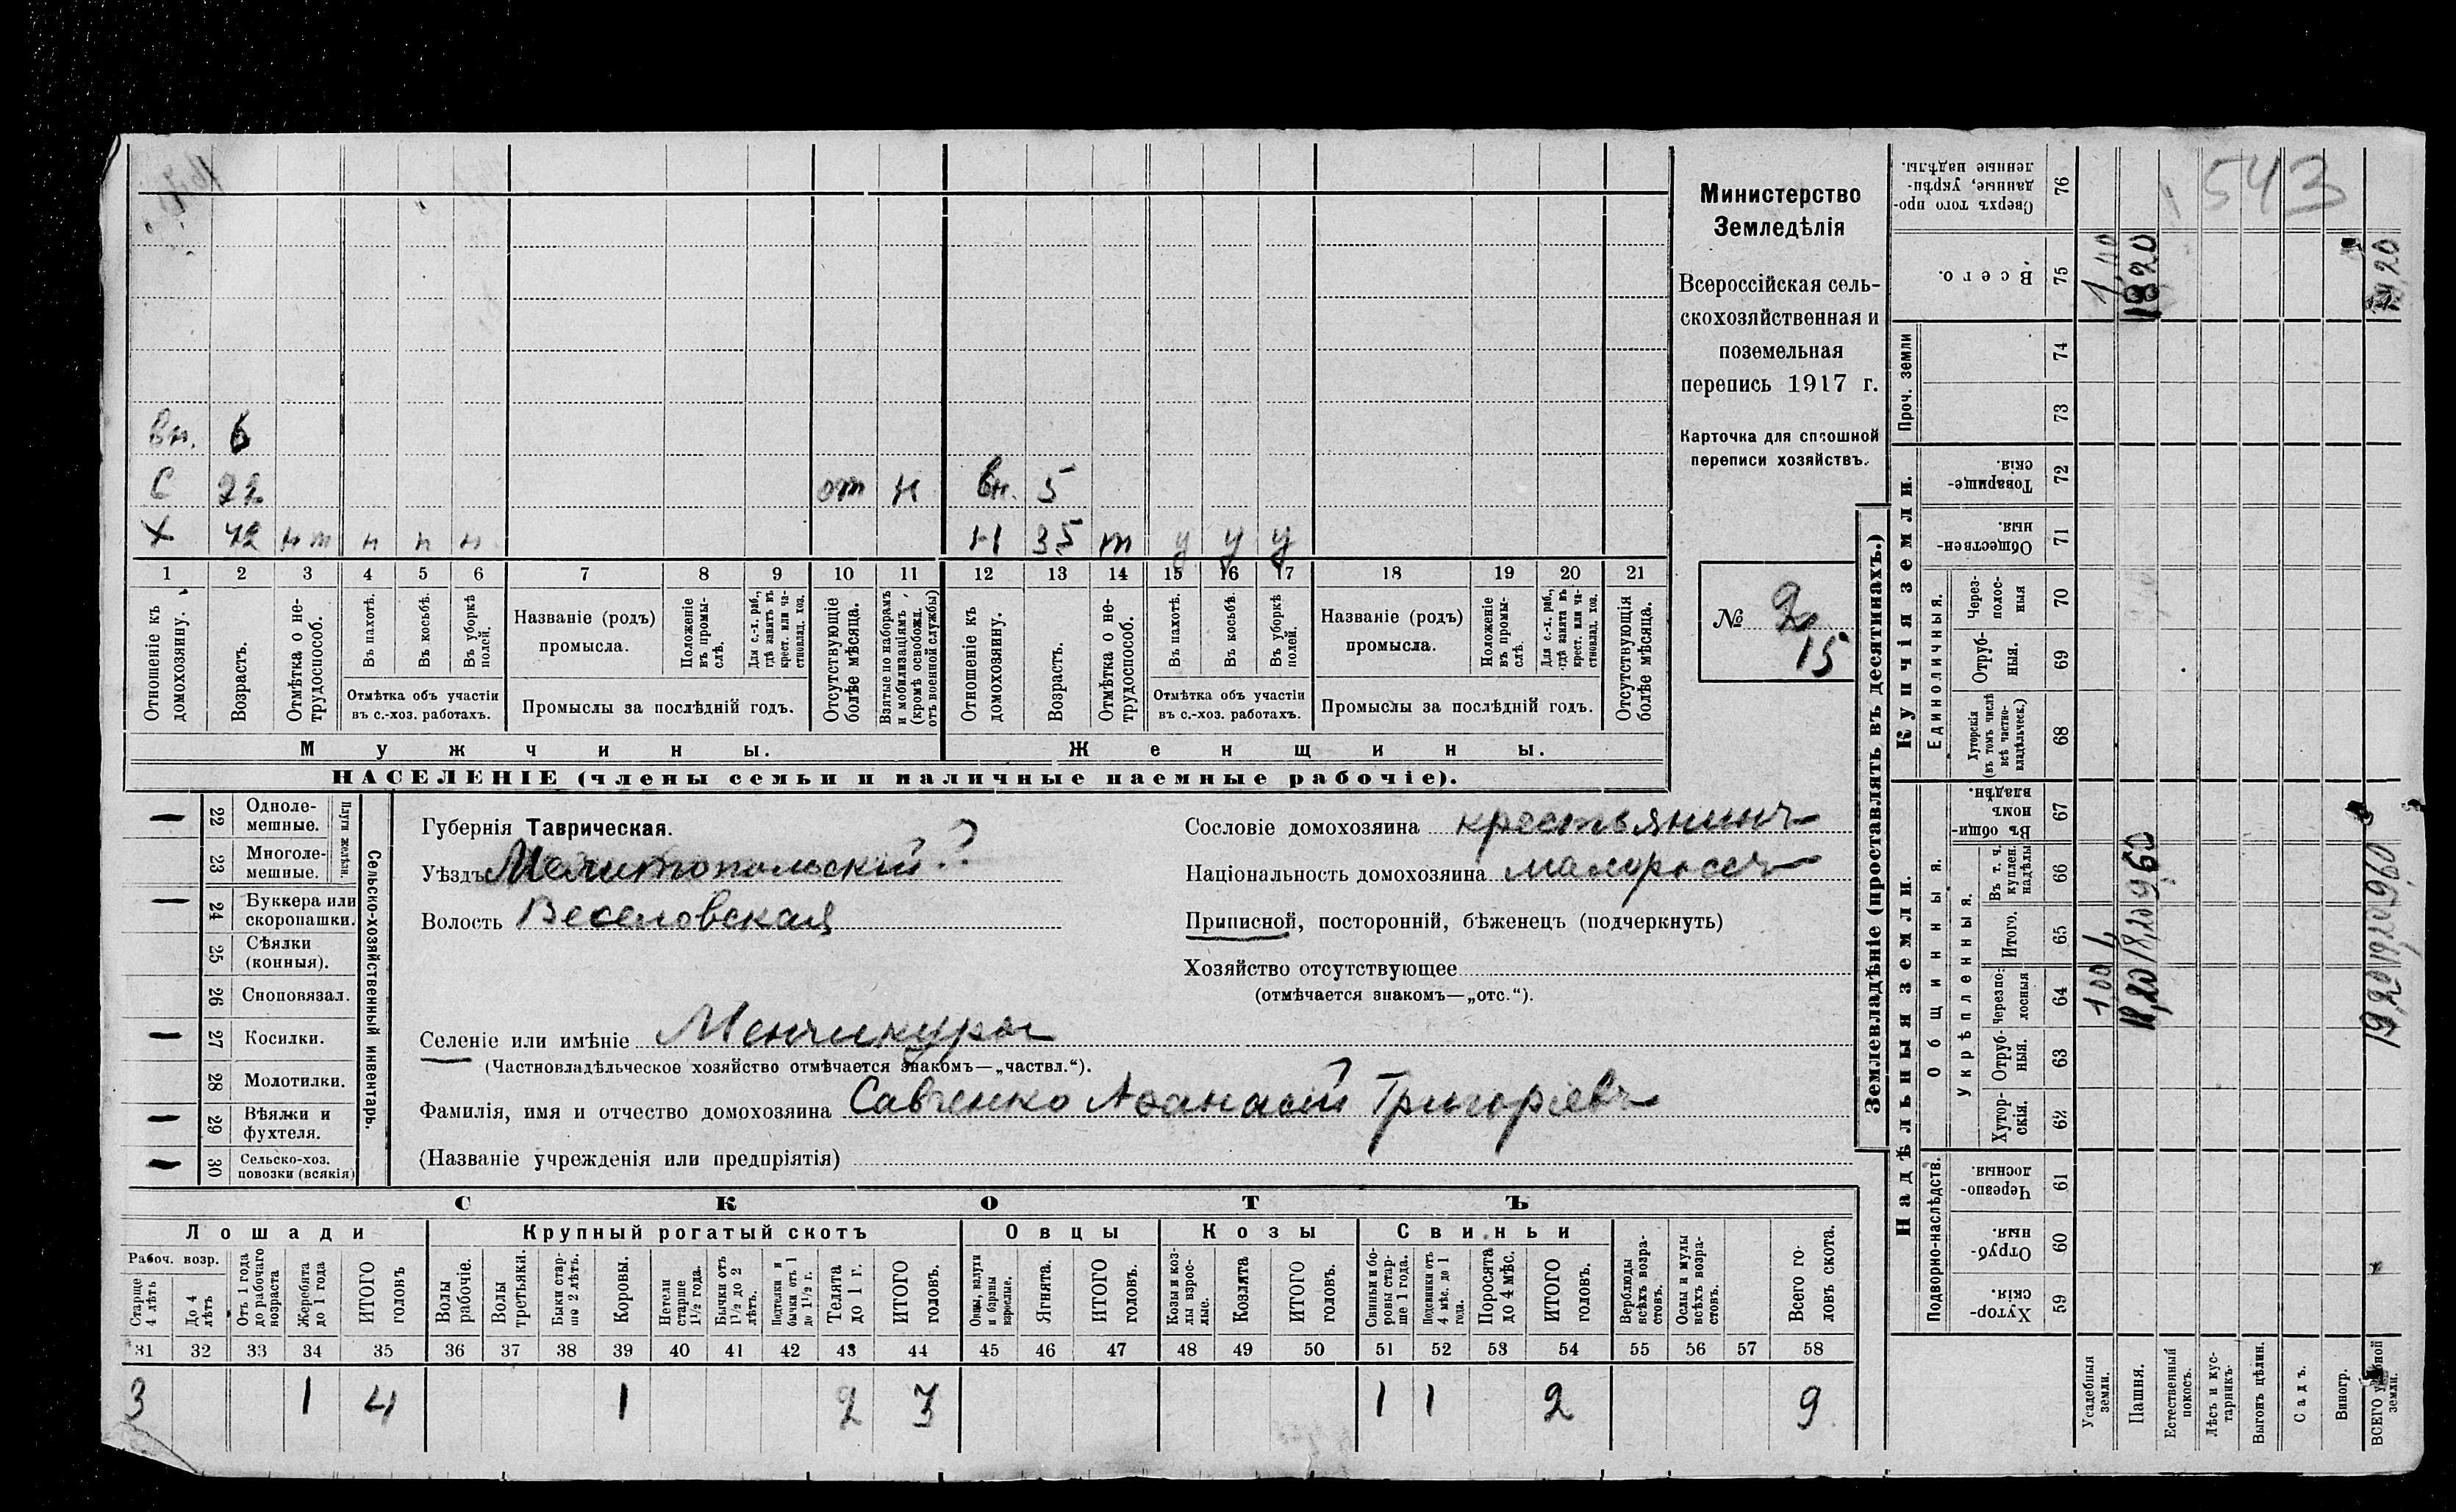 Вн. 6
С 22 от н вн. 5
Х 42 н т н н н Н 35 т у у у
1 2 3 4 5 6 7 8 9 10 11 12 13 14 15 16 17 18 19 20 21
Отношеніе къ домохозяину.
Возрастъ.
Отмѣтка о не-
трудоспособ.
Въ пахотѣ.
Въ косьбѣ.
Въ уборкѣ полей.
Отмѣтка объ участіи
въ с.-хоз. работахъ.
Названіе (родъ)
промысла.
Положеніе
въ промы-
слѣ.
Для с.-х. раб.,
гдѣ занятъ въ
крест. или ча-
стновлад. хоз.
Промыслы за послѣдній годъ.
Отсутствующіе
болѣе мѣсяца.
Взятые по наборамъ
и мобилизаціямъ
(кромѣ освобожд.
отъ военной службы)
Отношеніе къ
домохозяину.
Возрастъ.
Отмѣтка о не-
трудоспособ.
Въ пахотѣ.
Въ косьбѣ.
Въ уборкѣ
полей.
Отмѣтка объ участіи
въ с.-хоз. работахъ.
Названіе (родъ)
промысла.
Положеніе
въ промы-
слѣ.
Для с.-х. раб.,
гдѣ занята въ
крест. или ча-
стновлад. хоз.
Промыслы за послѣдній годъ.
Отсутствующія
болѣе мѣсяца.
Мужчины.
Женщины.
НАСЕЛЕНІЕ (члены семьи и наличные наемные рабочіе).
Министерство
Земледѣлія
Всероссійская сель-
скохозяйственная и
поземельная
перепись 1917 г.
Карточка для сплошной
переписи хозяйствъ.
№ 2/15
— 22 Одноле-
мешные.
23 Многоле-
мешные.
Плуги желѣзн.
— 24 Буккера или
скоропашки.
25 Сѣялки
(конныя).
26 Сноповязал.
— 27 Косилки.
28 Молотилки.
— 29 Вѣялки и
фухтеля.
— 30 Сельско-хоз.
повозки (всякія)
Сельско-хозяйственный инвентарь.
Губернія Таврическая.
Уѣздъ Мелитопольскій
Волость Веселовская
Сословіе домохозяина крестьянинъ
Національность домохозяина малороссъ
Приписной, посторонній, бѣженецъ (подчеркнуть)
Хозяйство отсутствующее
(отмѣчается знакомъ—„отс.“).
Селеніе или имѣніе Менчикуры
(Частновладѣльческое хозяйство отмѣчается знакомъ—„частвл.“).
Фамилія, имя и отчество домохозяина Савченко Аѳанасій Григорьевъ
(Названіе учрежденія или предпріятія)
СКОТЪ
Лошади Крупный рогатый скотъ Овцы Козы Свиньи
Рабоч. возр.
Старше
4 лѣтъ
До 4
лѣтъ
Отъ 1 года
до рабочаго
возраста
Жеребята
до 1 года
ИТОГО
головъ
Волы
рабочіе.
Волы
третьяки.
Быки стар-
ше 2 лѣтъ.
Коровы.
Нетели
старше
1½ года.
Бычки отъ
1½ до 2
лѣтъ.
Подтелки и
бычки отъ 1
до 1½ г.
Телята
до 1 г.
ИТОГО
головъ.
Овцы, валухи
и бараны
взрослые.
Ягнята.
ИТОГО
головъ.
Козы и коз-
лы взрос-
лые.
Козлята
ИТОГО
головъ.
Свиньи и бо-
ровы стар-
ше 1 года.
Подсвинки отъ
4 мѣс. до 1
года.
Поросята
до 4 мѣс.
ИТОГО
головъ.
Верблюды
всѣхъ возра-
стовъ.
Ослы и мулы
всѣхъ возра-
стовъ.
Всего го-
ловъ скота.
31 32 33 34 35 36 37 38 39 40 41 42 43 44 45 46 47 48 49 50 51 52 53 54 55 56 57 58
3 1 4 1 2 3 1 1 2 9
Землевладѣніе (проставлять въ десятинахъ.)
Надѣльныя земли.
Купчія земли.
Проч. земли
Подворно-наслѣдств.
Общинныя.
Укрѣпленныя.
Единоличныя.
Хутор-
скія. 59
Отруб-
ныя. 60
Черезпо-
лосныя. 61
Хутор-
скія. 62
Отруб-
ныя. 63
Черезпо-
лосныя 64
Итого. 65
Въ т. ч.
куплен.
надѣлы 66
Въ общин-
номъ
владѣн. 67
Хуторскія
(въ томъ числѣ
всѣ частно-
владѣльческ.) 68
Отруб-
ныя. 69
Через-
полос-
ныя 70
Обществен-
ныя. 71
Товарище-
скія. 72
73
74
Всего. 75
Сверхъ того про-
данные, укрѣп-
ленные надѣлы. 76
543
Усадебныя
земли.
Пашня.
Естественный
покосъ.
Лѣсъ и кус-
тарникъ.
Выгонъ цѣлин.
Садъ.
Виногр.
ВСЕГО удобной
земли.
1,00
18,20 18,20 9,60 18,20
19,20 19,20 9,60 19,20